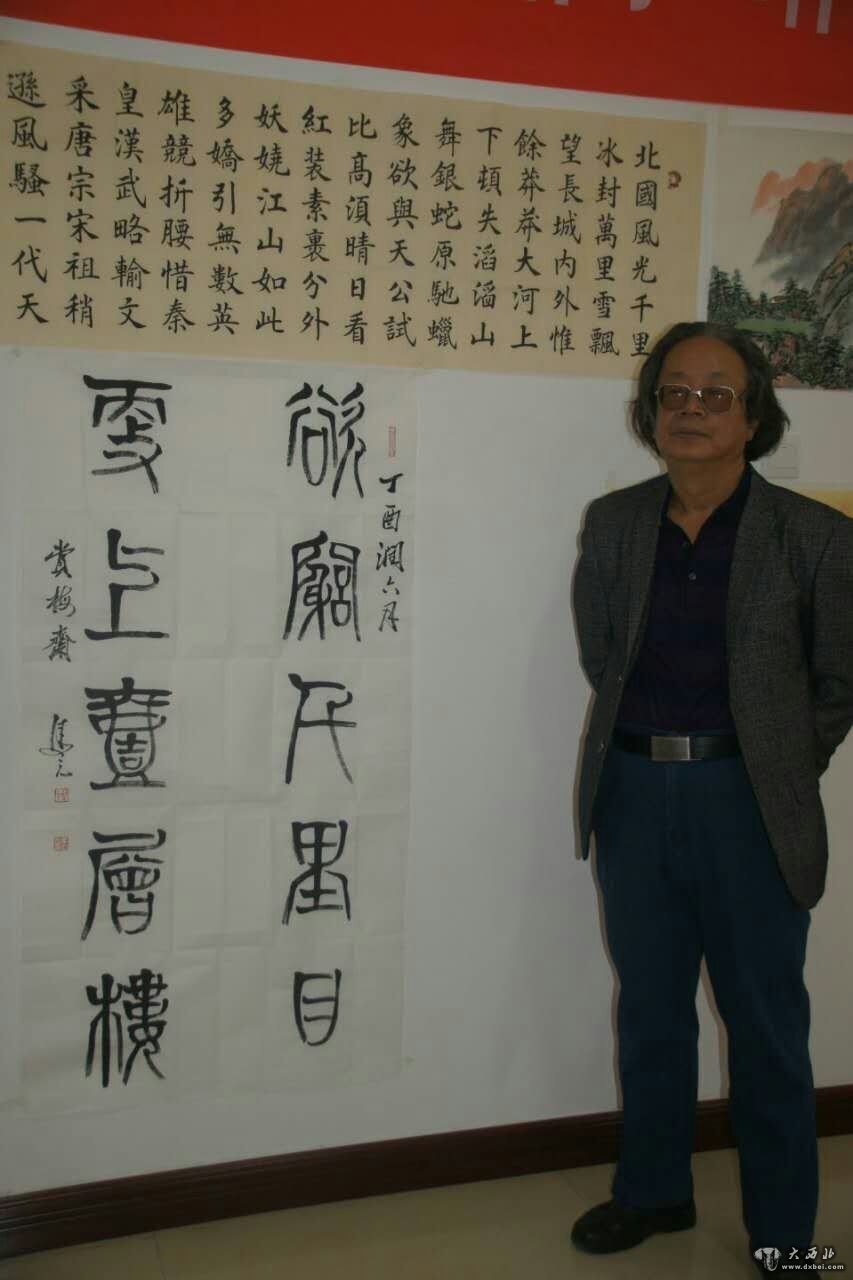 北國風光千里
冰封萬里雪飄
望長城内外惟
餘莽莽大河上
下頓失滔滔山
舞銀蛇原馳蠟
象欲與天公試
比髙湏晴日看
紅装素裹分外
妖嬈江山如此
多嬌引無數英
雄競折腰惜秦
皇漢武略輸文
采唐宗宋祖稍
遜風騷一代天
丁酉潤六月
欲窮千里目
更上壹層樓
賞梅齋
大西北
www.dxbei.com